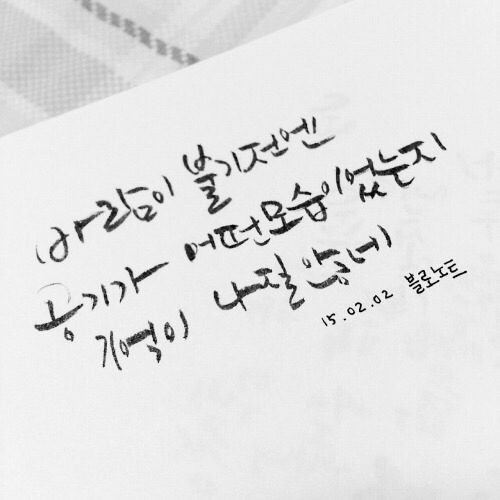 바람이 불기전엔
공기가 어떤모습이었는지
기억이 나질 않네
15.02.02 블로노트